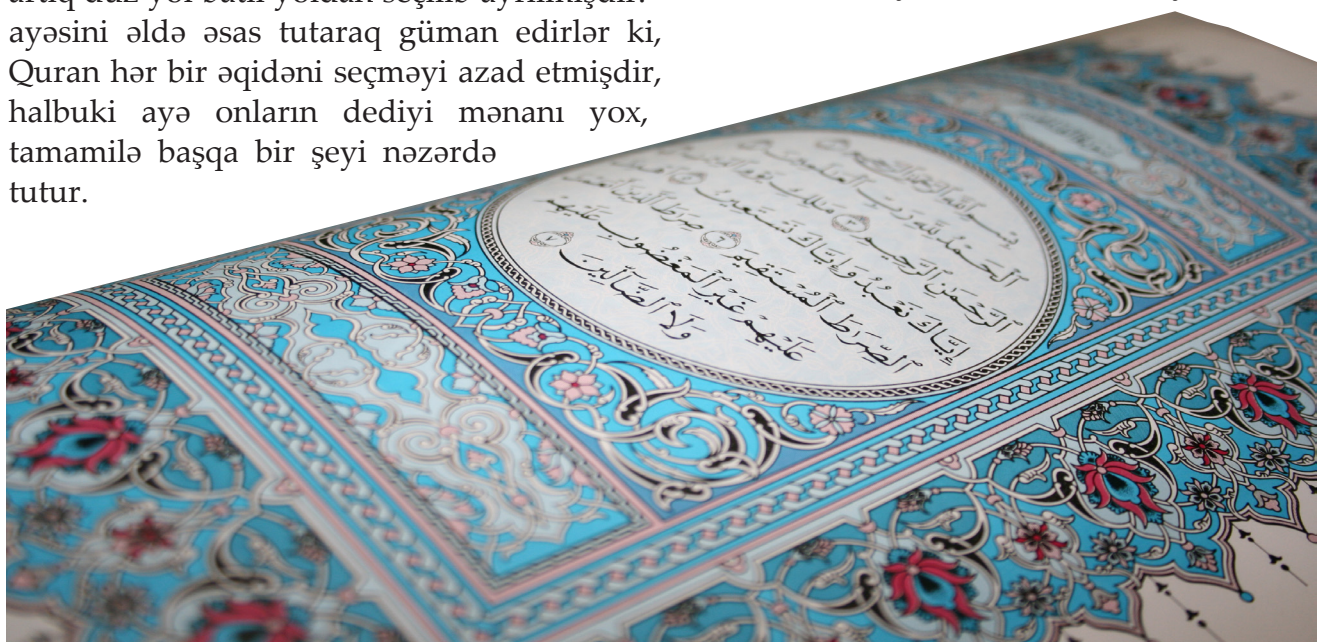 artıq düz yol batil yoldan seçilib ayrılmışdır.
ayəsini əldə əsas tutaraq güman edirlər ki,
Quran hər bir əqidəni seçməyi azad etmişdir,
halbuki ayə onların dediyi mənanı yox,
tamamilə başqa bir şeyi nəzərdə
tutur.
بِسْمِ ٱللَّهِ ٱلرَّحْمَٰنِ ٱلرَّحِيمِ
ٱلْحَمْدُ لِلَّهِ رَبِّ ٱلْعَٰلَمِينَ
ٱلرَّحْمَٰنِ ٱلرَّحِيمِ ٣ مَٰلِكِ يَوْمِ
إِيَّاكَ نَعْبُدُ وَإِيَّاكَ نَسْتَعِينُ ٥
ٱلصِّرَٰطَ ٱلْمُسْتَقِيمَ ٦ صِرَٰطَ ٱلَّذِينَ أَنْعَمْتَ
عَلَيْهِمْ غَيْرِ ٱلْمَغْضُوبِ عَلَيْهِمْ
وَلَا ٱلضَّآلِّينَ ٧